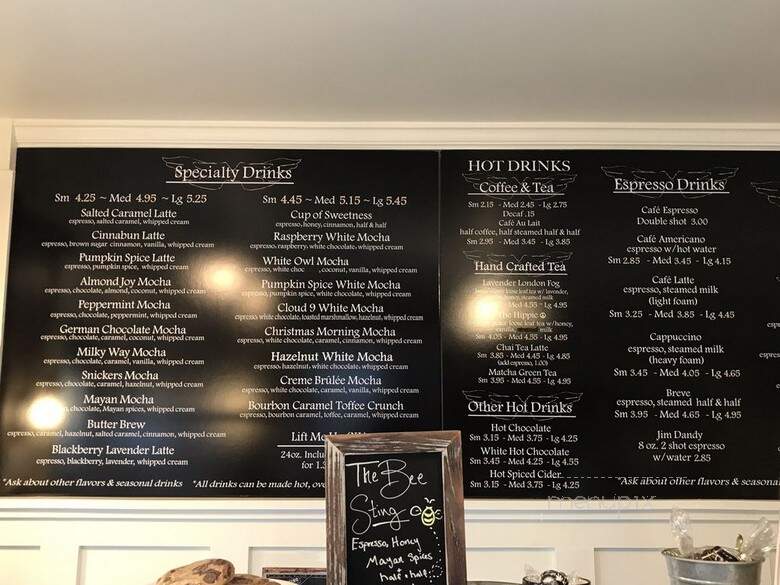 Specialty Drinks
Sm 4.25 ~ Med 4.95 ~ Lg 5.25
Salted Caramel Latte
espresso, salted caramel, whipped cream
Cinnabun Latte
espresso, brown sugar cinnamon, vanilla, whipped cream
Pumpkin Spice Latte
espresso, pumpkin spice, whipped cream
Almond Joy Mocha
espresso, chocolate, almond, coconut, whipped cream
Peppermint Mocha
espresso, chocolate, peppermint, whipped cream
German Chocolate Mocha
espresso, chocolate, caramel, coconut, whipped cream
Milky Way Mocha
espresso, chocolate, caramel, vanilla, whipped cream
Snickers Mocha
espresso, chocolate, caramel, hazelnut, whipped cream
Mayan Mocha
chocolate, Mayan spices, whipped cream
Butter Brew
espresso, caramel, hazelnut, salted caramel, cinnamon, whipped cream
Blackberry Lavender Latte
espresso, blackberry, lavender, whipped cream
Sm 4.45 ~ Med 5.15 ~ Lg 5.45
Cup of Sweetness
espresso, honey, cinnamon, half & half
Raspberry White Mocha
espresso, raspberry, white chocolate, whipped cream
White Owl Mocha
espresso, white choc , coconut, vanilla, whipped cream
Pumpkin Spice White Mocha
espresso, pumpkin spice, white chocolate, whipped cream
Cloud 9 White Mocha
espresso, white chocolate, toasted marshmallow, hazelnut, whipped cream
Christmas Morning Mocha
espresso, white chocolate, caramel, cinnamon, whipped cream
Hazelnut White Mocha
espresso, hazelnut, white chocolate, whipped cream
Creme Brûlée Mocha
espresso, white chocolate, caramel, vanilla, whipped cream
Bourbon Caramel Toffee Crunch
espresso, bourbon caramel, toffee, caramel, whipped cream
Lift Me
24oz. Inclu
for 1.
*Ask about other flavors & seasonal drinks *All drinks can be made hot, ove
HOT DRINKS
Coffee & Tea
Sm 2.15 - Med 2.45 - Lg 2.75
Decaf .15
Café Au Lait
half coffee, half steamed half & half
Sm 2.95 - Med 3.45 - Lg 3.85
Hand Crafted Tea
Lavender London Fog
loose leaf tea w/ lavender,
honey, steamed milk
Med 4.55 - Lg 4.95
The Hippie
loose leaf tea w/honey,
vanilla, milk
Sm 4.05 - Med 4.55 - Lg 4.95
Chai Tea Latte
Sm 3.85 - Med 4.45 - Lg 4.85
(add espresso, 1.00)
Matcha Green Tea
Sm 3.95 - Med 4.55 - Lg 4.95
Other Hot Drinks
Hot Chocolate
Sm 3.15 - Med 3.75 - Lg 4.25
White Hot Chocolate
Sm 3.45 - Med 4.25 - Lg 4.55
Hot Spiced Cider
Sm 3.15 - Med 3.75 - Lg 4.25
Espresso Drinks
Café Espresso
Double shot 3.00
Café Americano
espresso w/hot water
Sm 2.85 - Med 3.45 - Lg 4.15
Café Latte
espresso, steamed milk
(light foam)
Sm 3.25 - Med 3.85 - Lg 4.45
Cappuccino
espresso, steamed milk
(heavy foam)
Sm 3.45 - Med 4.05 - Lg 4.65
Breve
espresso, steamed half & half
Sm 3.95 - Med 4.65 - Lg 4.95
Jim Dandy
8 oz. 2 shot espresso
w/water 2.85
*Ask about other flavors & seasona
The Bee
Sting
Espresso, Honey
Mayan Spices
half + half